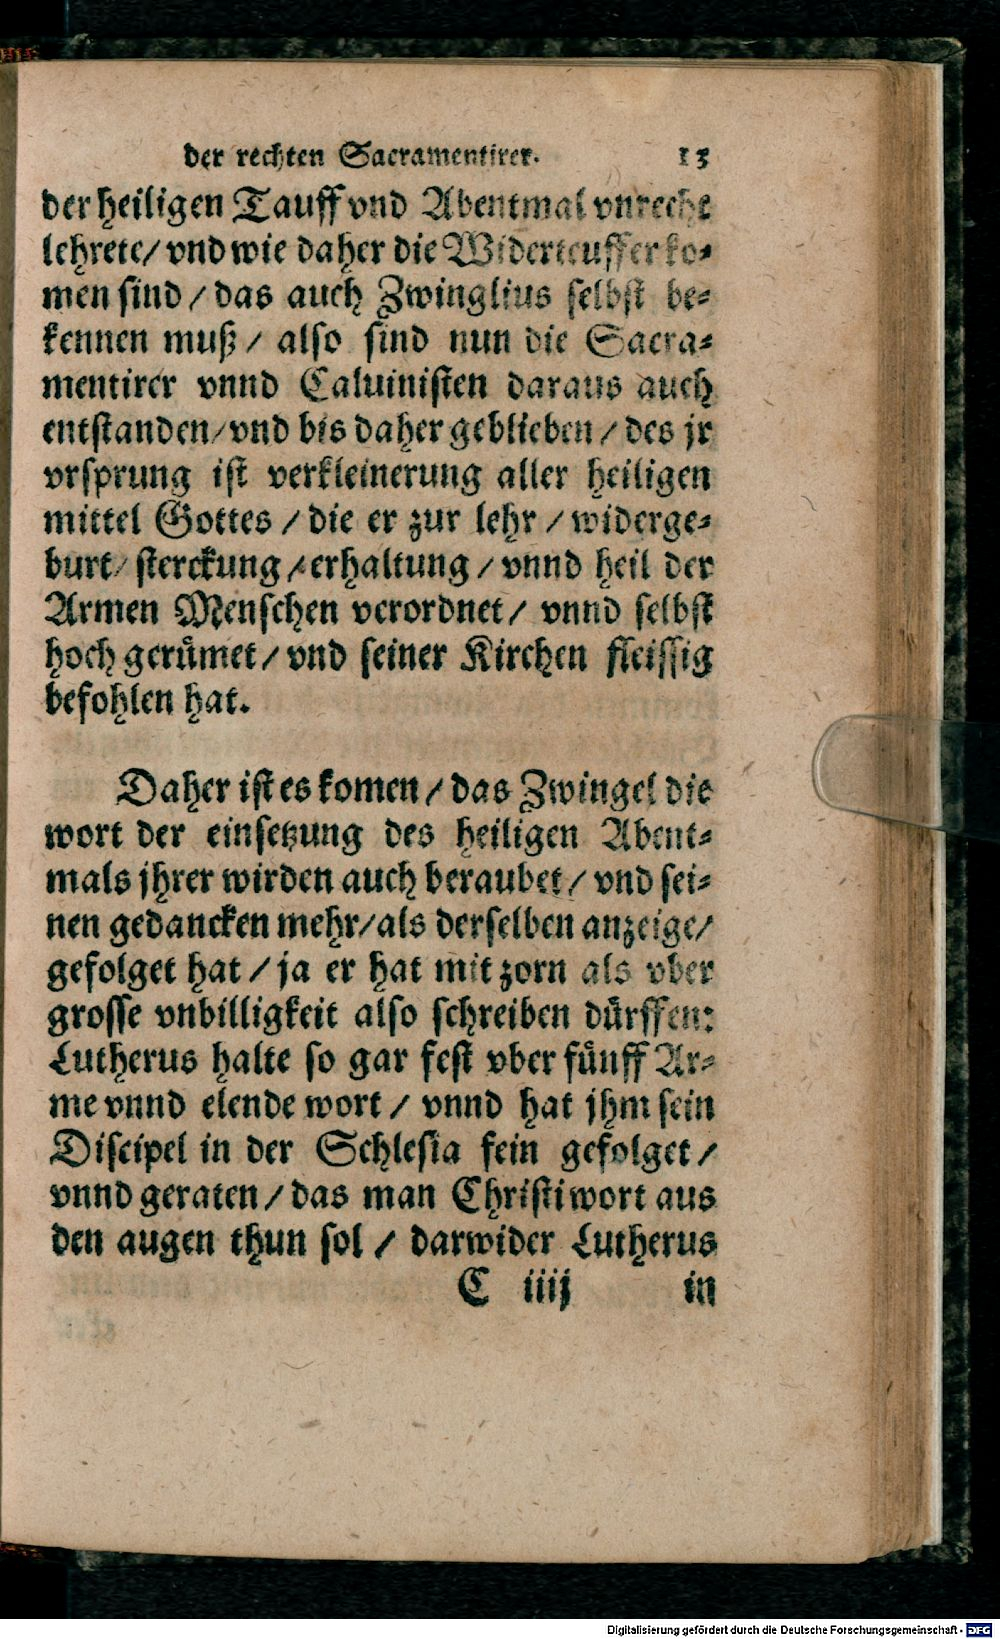 der rechten Sacramentirer. 13
der heiligen Tauff vnd Abentmal vnrecht
lehrete/ vnd wie daher die Widerteuffer ko⸗
men sind / das auch Zwinglius selbst be⸗
kennen muß / also sind nun die Sacra⸗
mentirer vnnd Caluinisten daraus auch
entstanden/ vnd bis daher geblieben / des jr
vrsprung ist verkleinerung aller heiligen
mittel Gottes / die er zur lehr / widerge⸗
burt/ sterckung / erhaltung / vnnd heil der
Armen Menschen verordnet/ vnnd selbst
hoch gerůmet/ vnd seiner Kirchen fleissig
befohlen hat.
Daher ist es komen / das Zwingel die
wort der einsetzung des heiligen Abent⸗
mals jhrer wirden auch beraubet/ vnd sei⸗
nen gedancken mehr/ als derselben anzeige/
gefolget hat / ja er hat mit zorn als vber
grosse vnbilligkeit also schreiben důrffen:
Lutherus halte so gar fest vber fůnff Ar⸗
me vnnd elende wort / vnnd hat jhm sein
Discipel in der Schlesia fein gefolget /
vnnd geraten / das man Christi wort aus
den augen thun sol / darwider Lutherus
C iiij in
Digitalisierung gefördert durch die Deutsche Forschungsgemeinschaft - DFG